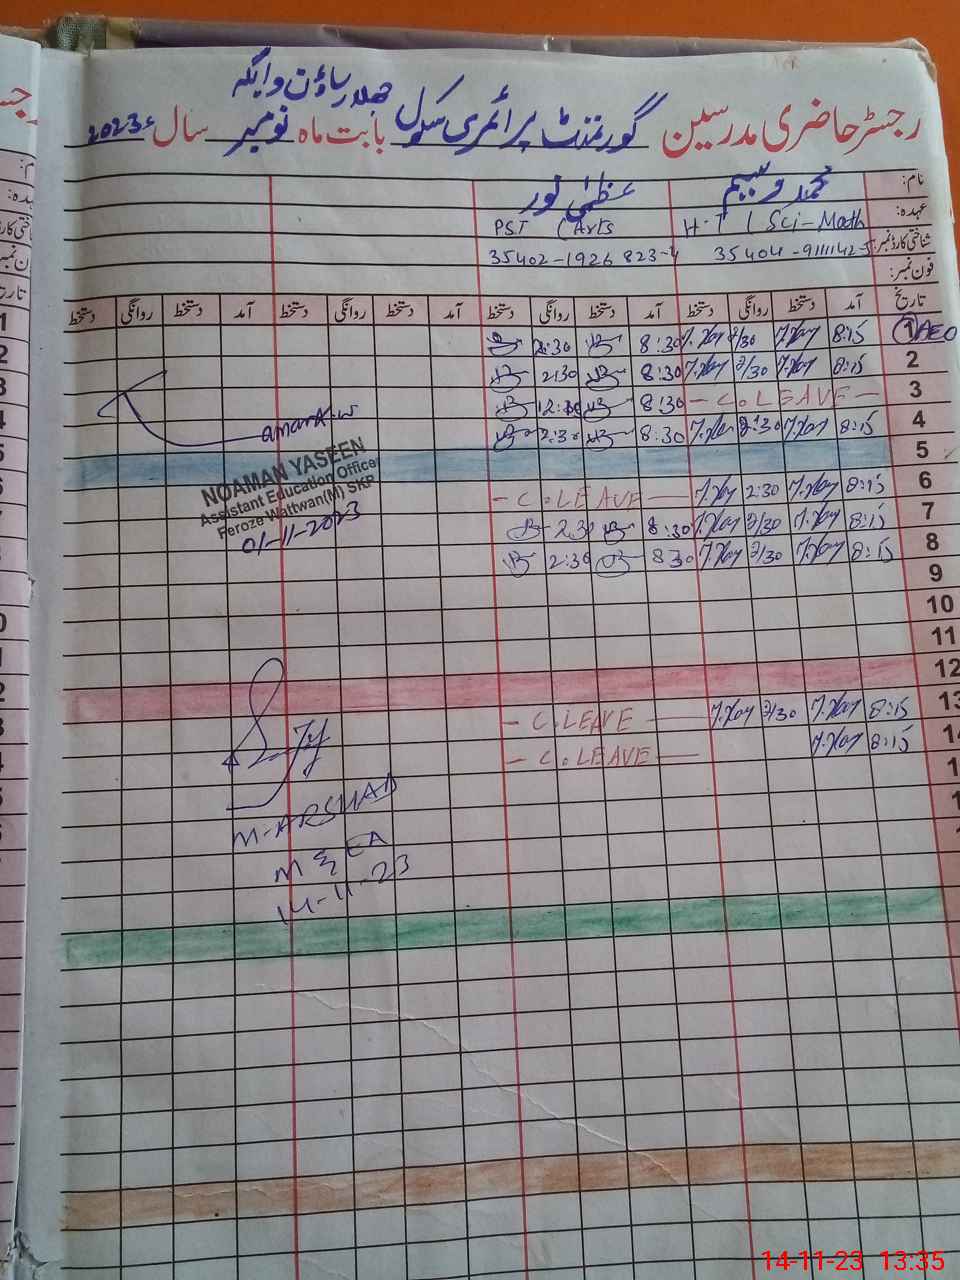 رجسٹر حاضری مدرسین گورنمنٹ پرائمری سکول بابت ماہ نومبر سال 2023ء
نام: محمد وسیم عظمیٰ نور
عہدہ: H.T (Sci-Math PST (Arts
شناختی کارڈ نمبر: 35404-9111142-5 35402-1926823-4
فون نمبر:
تاریخ آمد دستخط روانگی دستخط آمد دستخط روانگی دستخط آمد دستخط روانگی دستخط آمد دستخط روانگی دستخط
1 AEO 8:15 2/30 8:30 2:30
2 8:15 2/30 8:30 2:30
3 - C.LEAVE - 8:30 12:30
4 8:15 2:30 8:30 2:30
5
6 8:15 2:30 - C.LEAVE -
7 8:15 2/30 8:30 2:30
8 8:15 2/30 8:30 2:30
9
10
11
12
13 8:15 2/30 - C.LEAVE -
14 8:15 - C.LEAVE -
NOAMAN YASEEN
Assistant Education Officer
Feroze Wattwan(M) SKP
01-11-2023
M-ARSHAD
M & EA
14-11-23
14-11-23 13:35